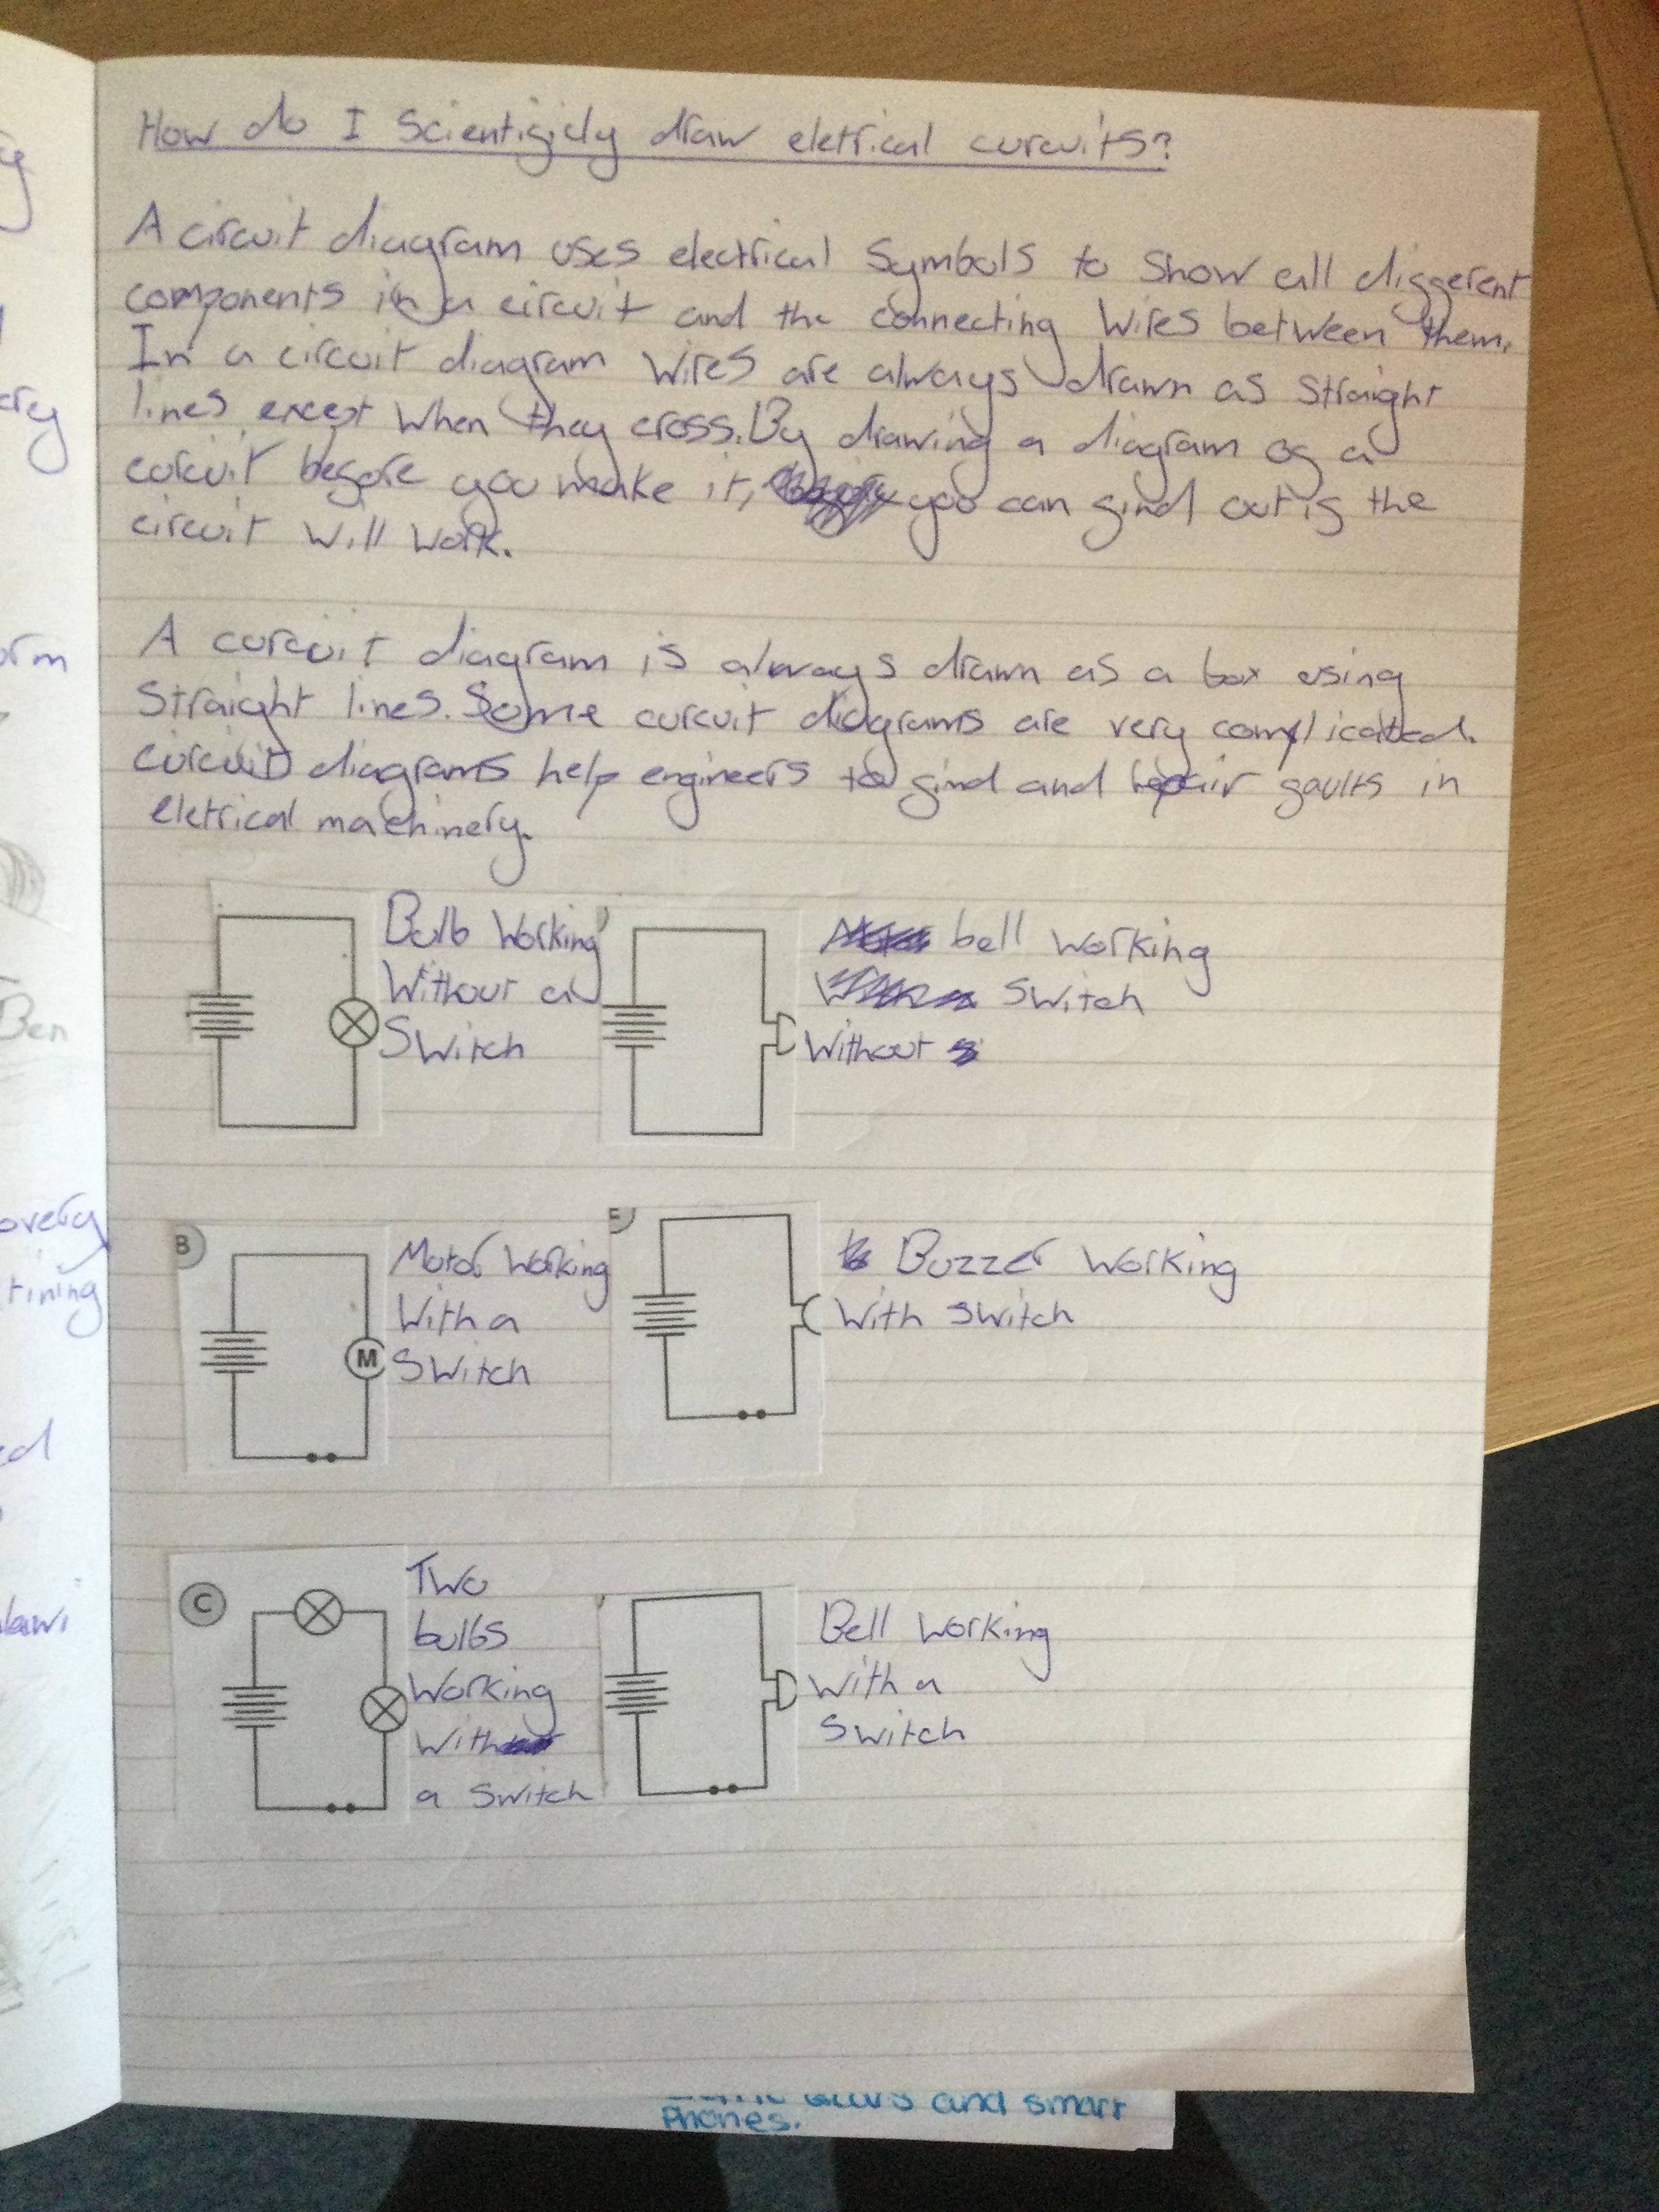 How do I Scientificly draw eletrical curcuits?
A circuit diagram uses electrical Symbols to Show all different
components in a circuit and the connecting Wires between them.
In a circuit diagram Wires are always drawn as Straight
lines except When they cross. By drawing a diagram of a
curcuit before you make it, you can find out if the
circuit Will Work.
A curcuit diagram is always drawn as a box using
Straight lines. Some curcuit diagrams are very complicated.
Curcuit diagrams help engineers to find and repair faults in
eletrical machinery.
Bulb Working
Without a
Switch
bell working
Switch
Without
B
Motor Working
With a
M
Switch
Buzzer Working
With switch
C
Two
bulbs
Working
With
a Switch
Bell Working
With a
Switch
ry
ery
orm
Ben
overy
rining
ed
lawi
and smart
Phones.